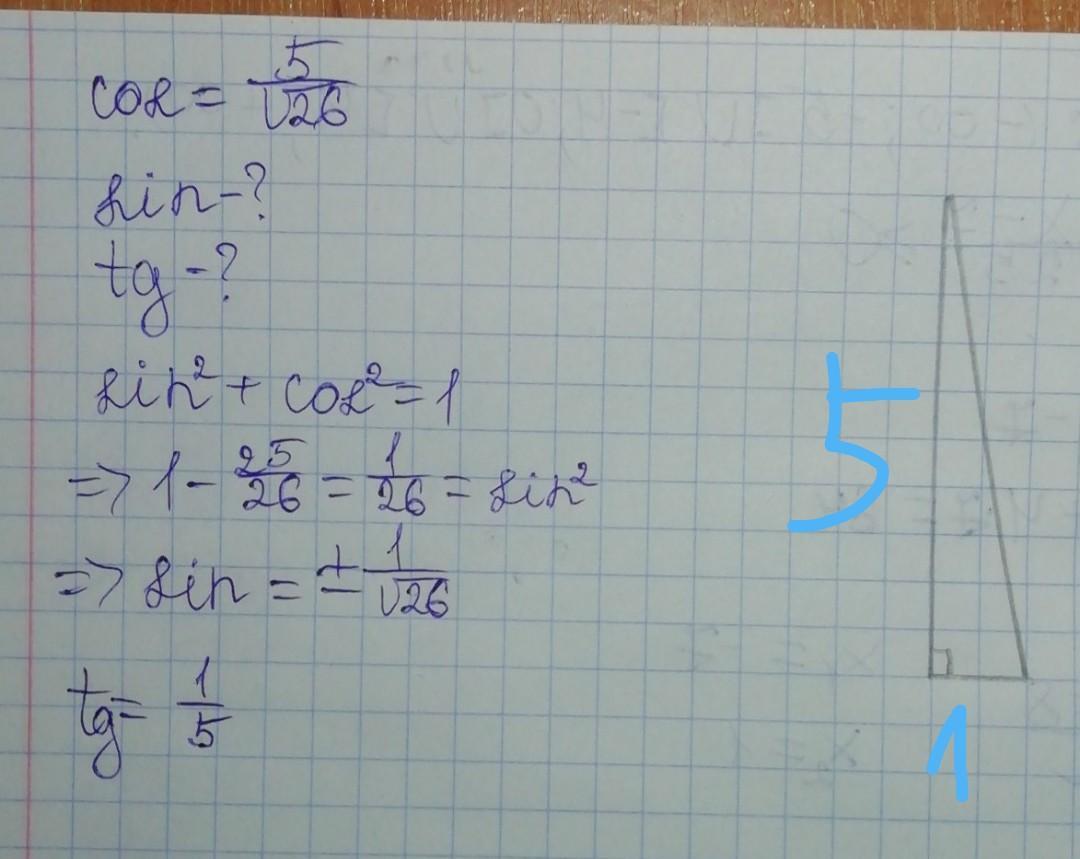 cos = 5/√26
sin - ?
tg - ?
sin² + cos² = 1
=> 1 - 25/26 = 1/26 = sin²
=> sin = ± 1/√26
tg = 1/5
5
1